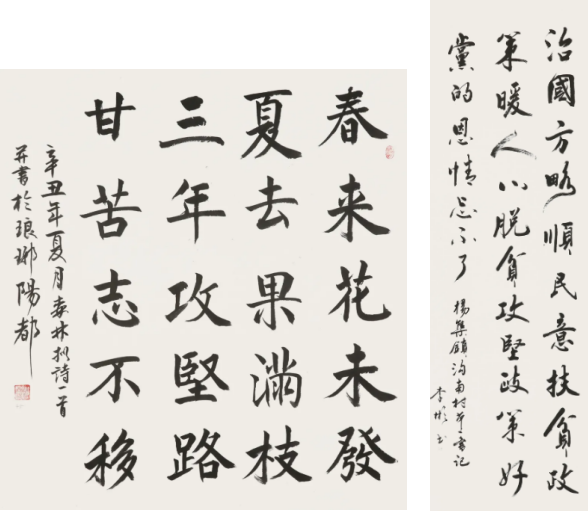 春来花未發
夏去果满枝
三年攻堅路
甘苦志不移
辛丑年夏月森林拟詩一首
并書於琅琊陽都
治國方略順民意扶貧政
策暖人心脱貧攻堅政策好
黨的恩情忘不了
楊集鎮沟南村第一書記
李彬书